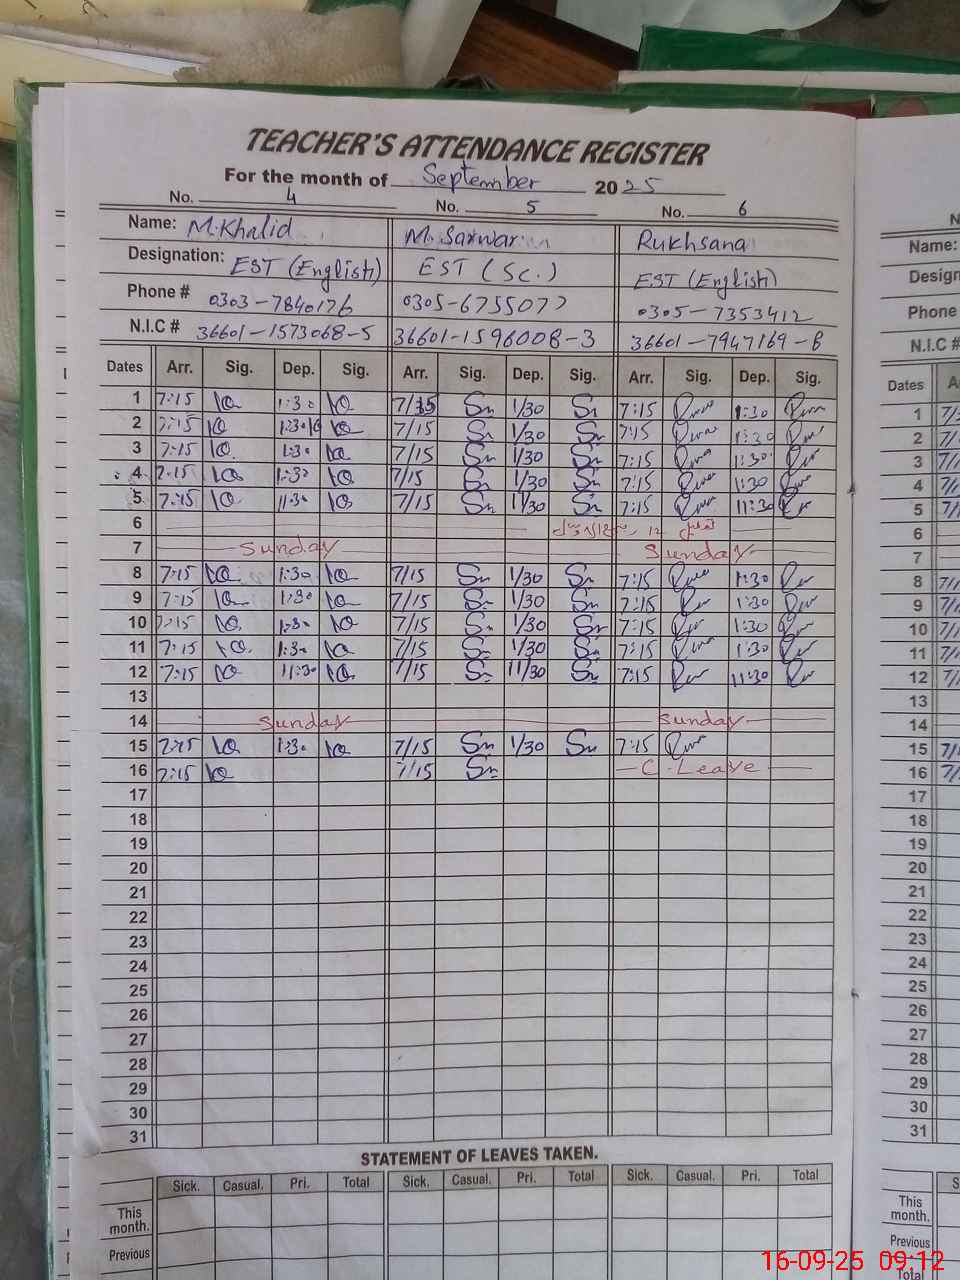 TEACHER'S ATTENDANCE REGISTER
For the month of September 2025
No. 4 No. 5 No. 6
Name: M.Khalid M. Sarwar Rukhsana
Designation: EST (English) EST (Sc.) EST (English)
Phone # 0303-7840176 0305-6755077 0305-7353412
N.I.C # 36601-1573068-5 36601-1596008-3 36601-7947169-8
Dates Arr. Sig. Dep. Sig. Arr. Sig. Dep. Sig. Arr. Sig. Dep. Sig.
1 7:15 1:30 7/15 1/30 7:15 1:30
2 7:15 1:30 7/15 1/30 7:15 1:30
3 7:15 1:30 7/15 1/30 7:15 1:30
4 7:15 1:30 7/15 1/30 7:15 1:30
5 7:15 11:30 7/15 11/30 7:15 11:30
6 12
7 Sunday Sunday
8 7:15 1:30 7/15 1/30 7:15 1:30
9 7:15 1:30 7/15 1/30 7:15 1:30
10 7:15 1:30 7/15 1/30 7:15 1:30
11 7:15 1:30 7/15 1/30 7:15 1:30
12 7:15 11:30 7/15 11/30 7:15 11:30
13
14 Sunday Sunday
15 7:15 1:30 7/15 1/30 7:15
16 7:15 7/15 C. Leave
17
18
19
20
21
22
23
24
25
26
27
28
29
30
31
STATEMENT OF LEAVES TAKEN.
Sick. Casual. Pri. Total Sick. Casual. Pri. Total Sick. Casual. Pri. Total
This month.
Previous
Name:
Phone
N.I.C #
Dates
1
2
3
4
5
6
7
8
9
10
11
12
13
14
15
16
17
18
19
20
21
22
23
24
25
26
27
28
29
30
31
This month.
Previous
Total
16-09-25 09:12